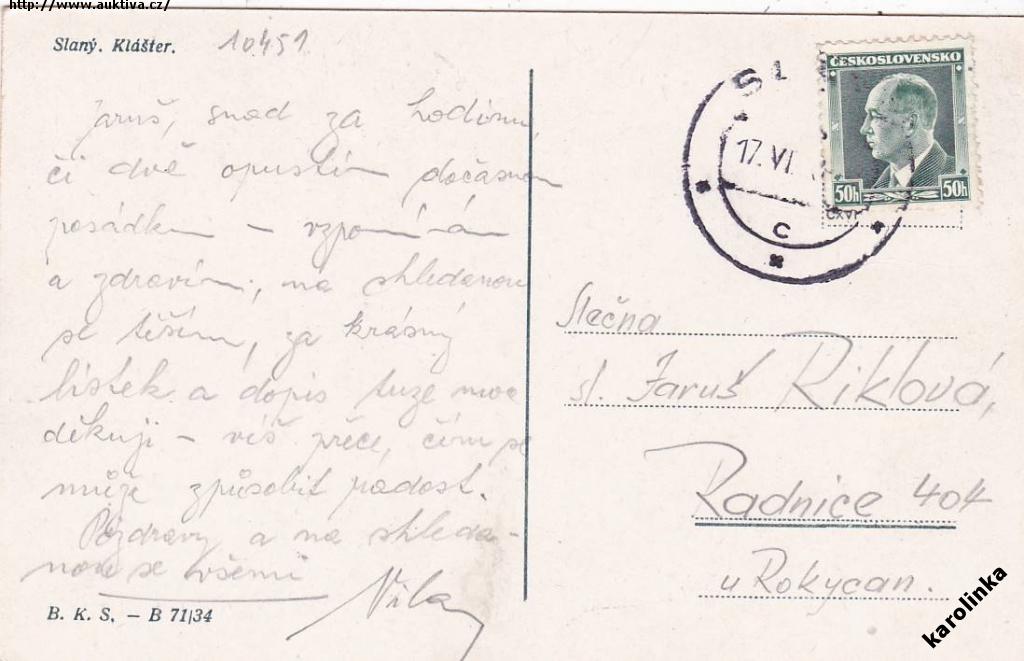 http://www.auktiva.cz/
Slaný. Klášter.
10451
Jaruš, snad za hodinu,
či dvě opustím dočasnou
posádku – vzpomínám
a zdravím, na shledanou
se těším, za krásný
lístek a dopis tuze moc
děkuji – víš přece, čím se
může způsobit radost.
Pozdravy a na shleda-
nou se všemi
B. K. S. – B 71|34
ČESKOSLOVENSKO
50h 50h
SL
17. VI.
C
Slečna
sl. Jaruš Riklová,
Radnice 404
u Rokycan.
karolinka